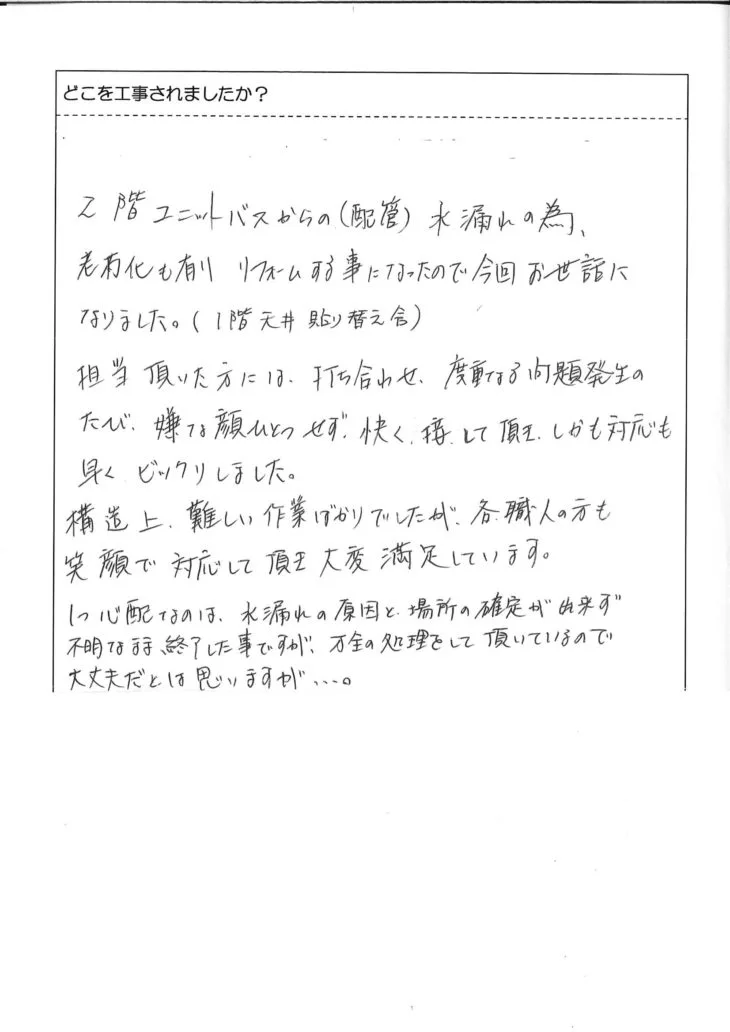 どこを工事されましたか？
2階ユニットバスからの(配管)水漏れの為、
老朽化も有りリフォームする事になったので今回お世話に
なりました。(1階天井貼り替え含)
担当頂いた方には、打ち合わせ、度重なる問題発生の
たび、嫌な顔ひとつせず、快く、接して頂き、しかも対応も
早くビックリしました。
構造上、難しい作業ばかりでしたが、各職人の方も
笑顔で対応して頂き大変満足しています。
1つ心配なのは、水漏れの原因と、場所の確定が出来ず
不明なまま、終了した事ですが、万全の処理をして頂いているので
大丈夫だとは思いますが・・・。